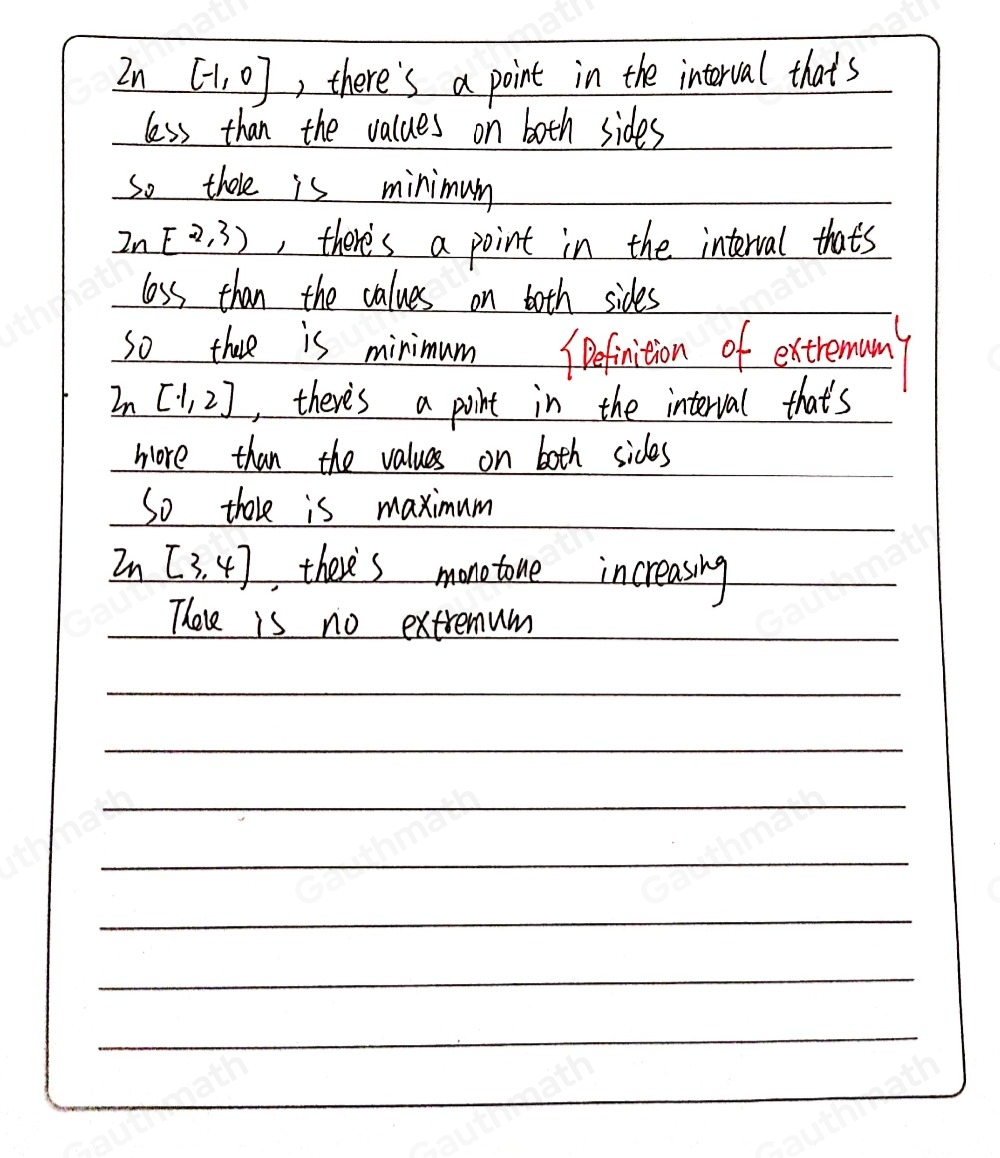 In [-1, 0], there's a point in the interval that's
less than the values on both sides
so there is minimum
In [2,3), there's a point in the interval that's
less than the values on both sides
so there is minimum {Definition of extremum}
In [1, 2], there's a point in the interval that's
more than the values on both sides
So there is maximum
In [3,4], there's monotone increasing
There is no extremum
Gauthmath